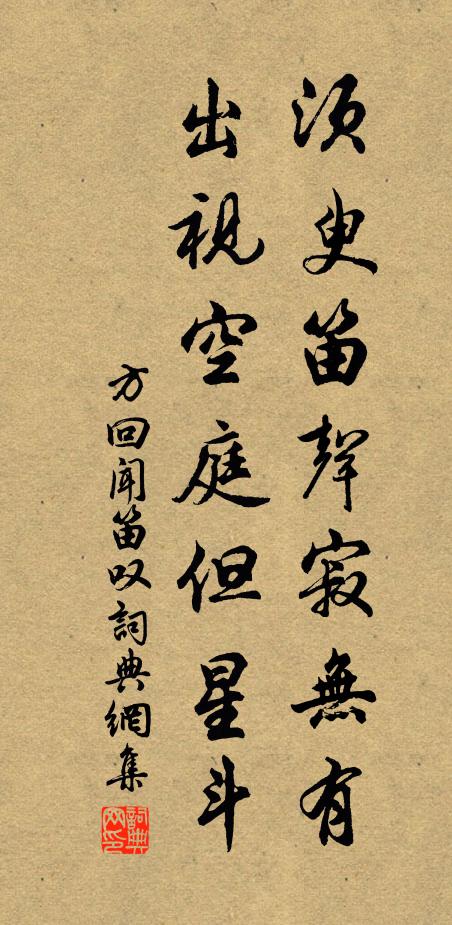 須臾笛聲寂無有
出視空庭但星斗
方回聞笛叹詞典網集
詞典網印